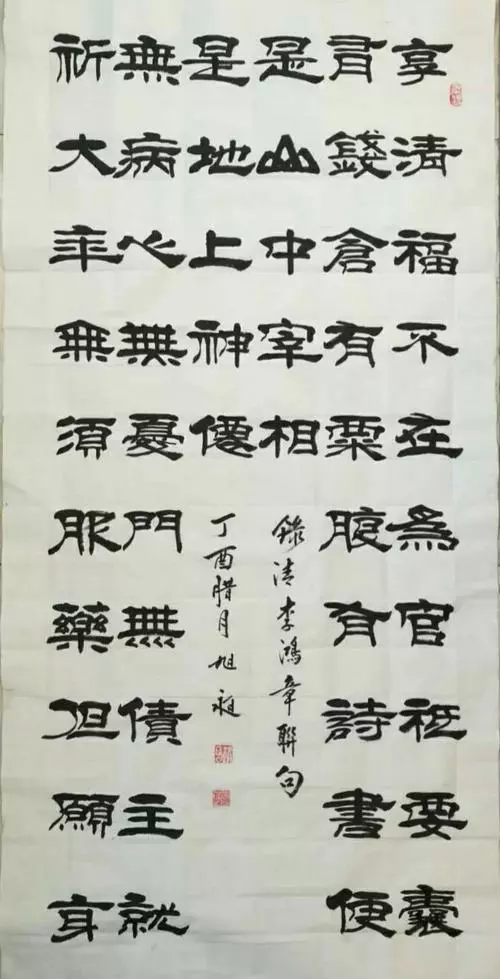 享清福不在爲官祗要囊
有錢倉有粟腹有詩書便
是山中宰相
錄清李鴻章聯句
祈大年無須服藥但願身
無病心無憂門無債主就
是地上神僊
丁酉腊月旭昶